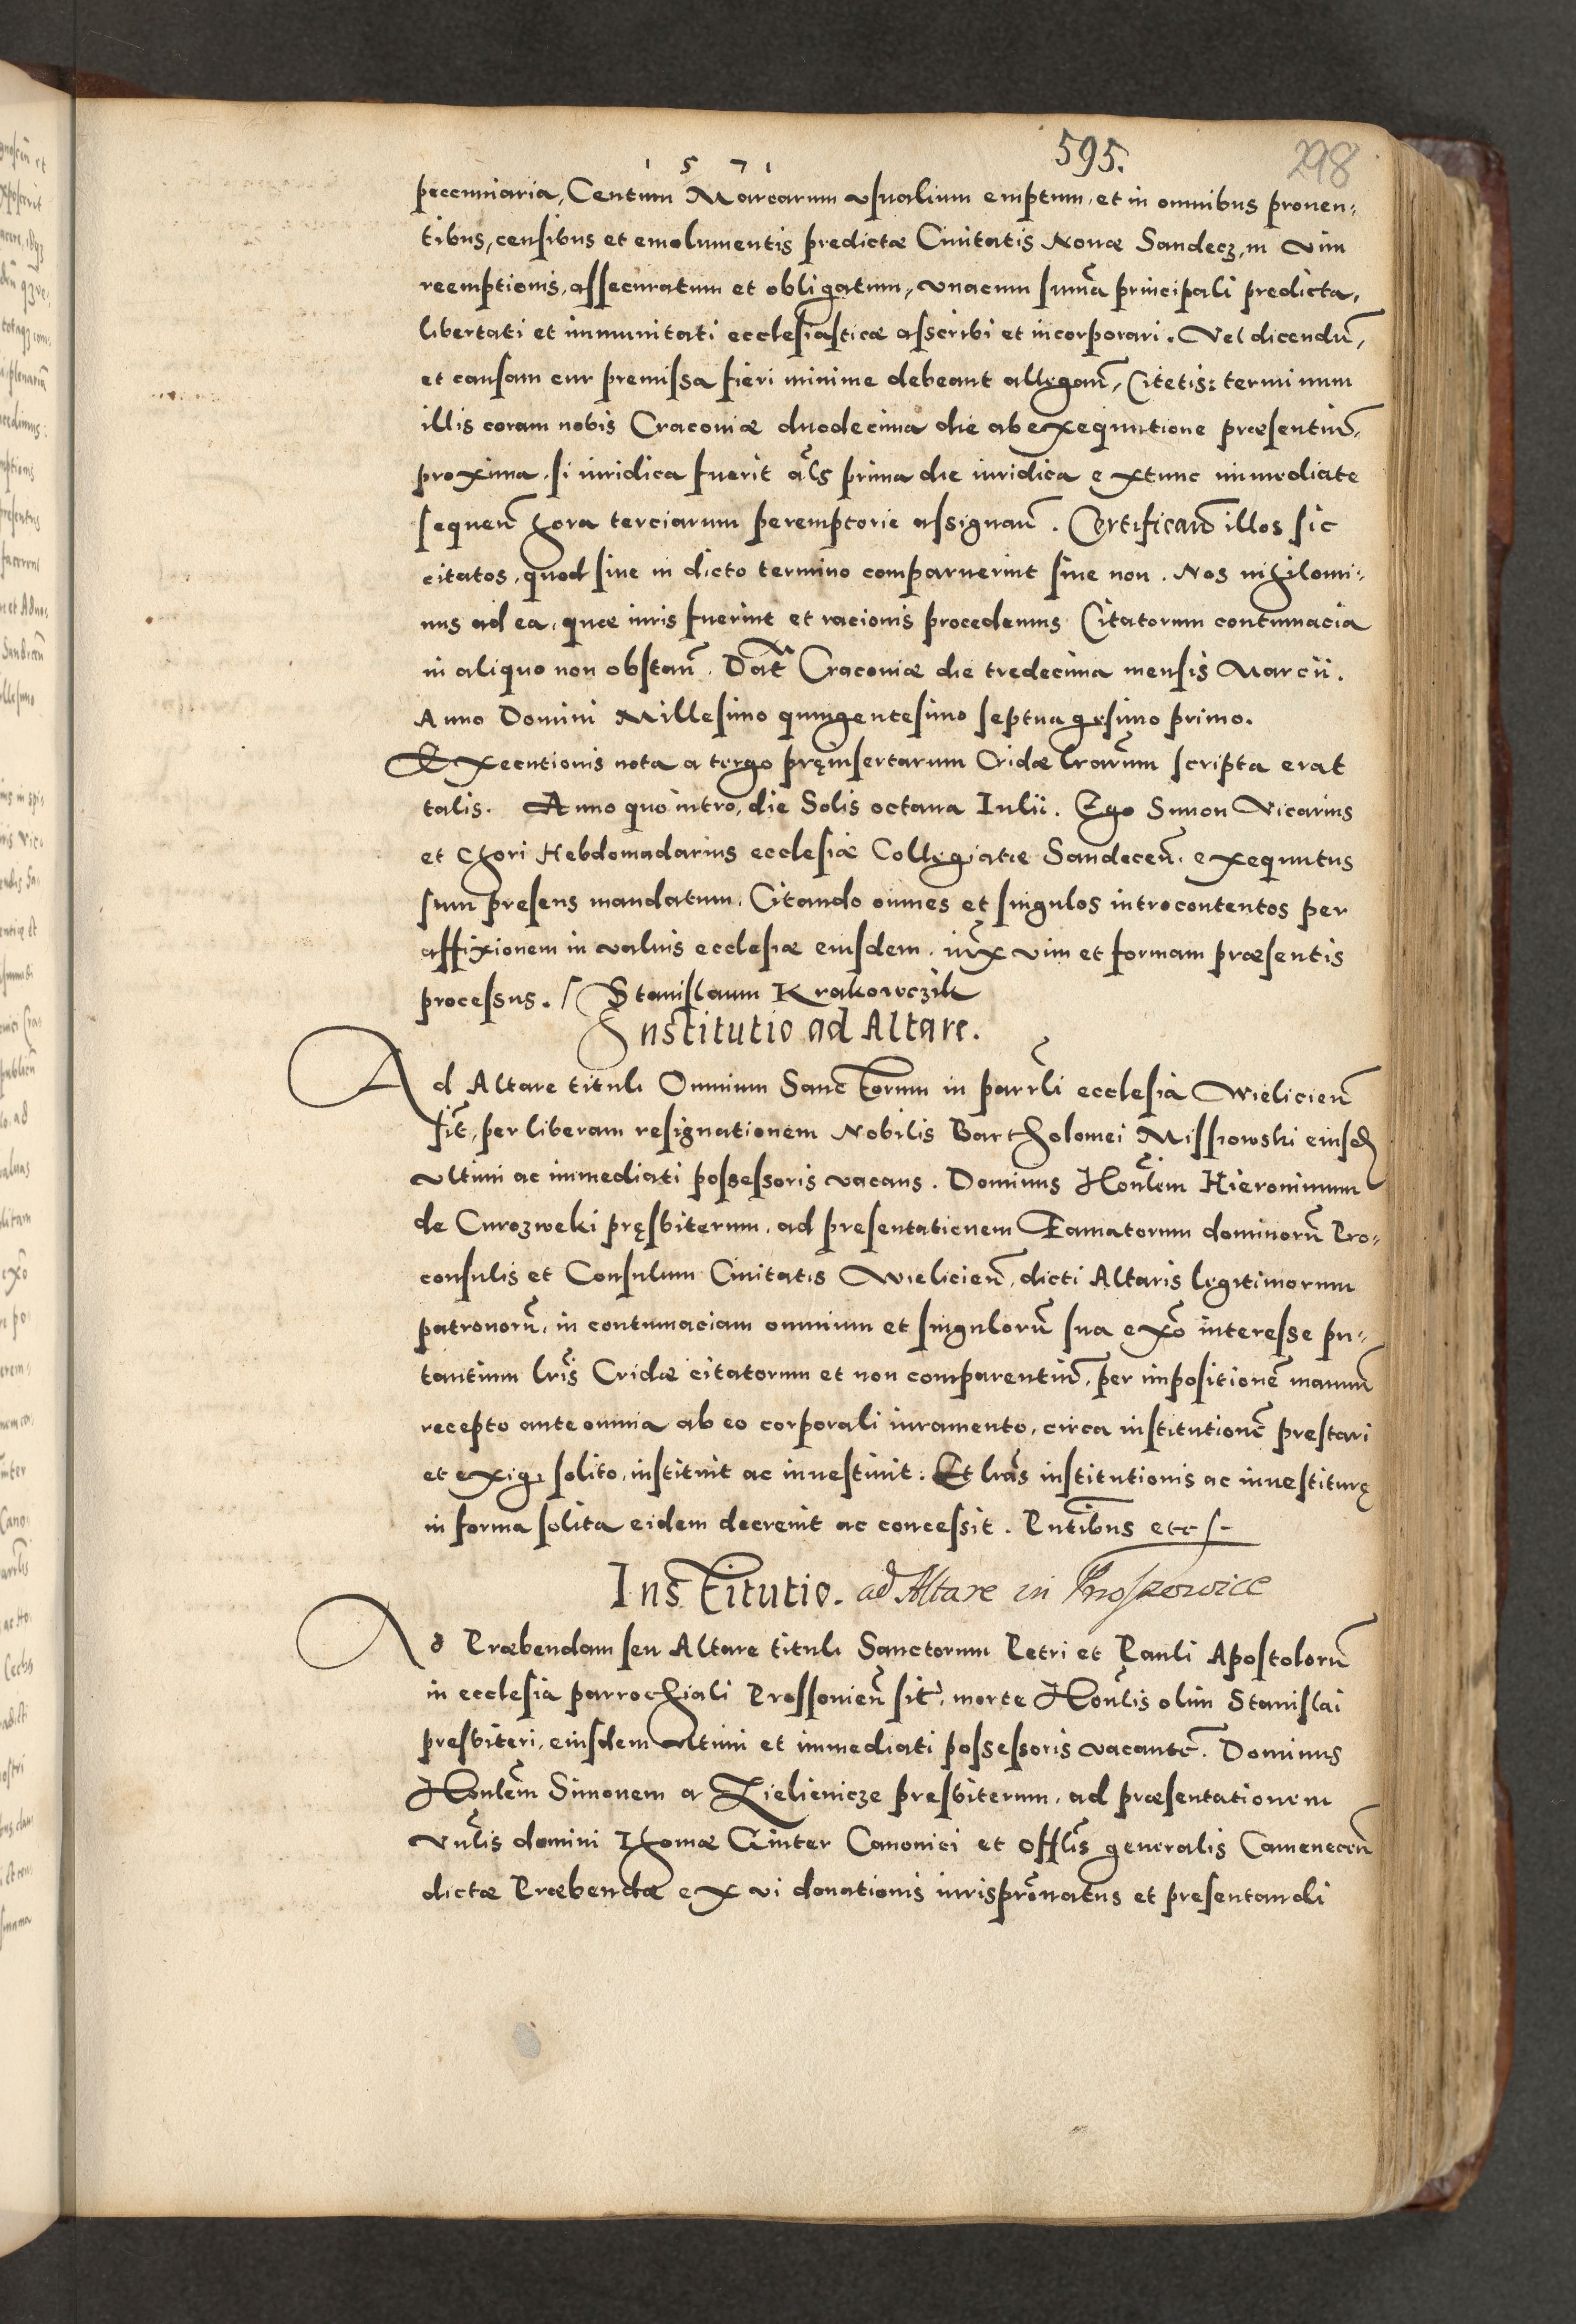 1 5 7 1
595.
298
pecuniaria, Centum Marcarum usualium emptum, et in omnibus proven-
tibus, censibus et emolumentis predictæ Civitatis Novæ Sandecz, in vim
reemptionis, assecuratum et obligatum, unacum summa principali predicta,
libertati et immunitati ecclesiasticæ asscribi et incorporari. Vel dicendum,
et causam cur premissa fieri minime debeant allegañ, Citetis: terminum
illis coram nobis Cracoviæ duodecima die ab exequutione præsentium,
proxima, si iuridica fuerit als prima die iuridica extunc immediate
sequeñ hora terciarum peremptorie assignañ. Certificañ illos sic
citatos, quod sive in dicto termino comparuerint sive non. Nos nihilomi-
nus ad ea, quæ iuris fuerint et racionis procedemus Citatorum contumacia
in aliquo non obstañ. Dat Cracoviæ die tredecima mensis Marcii.
Anno Domini Millesimo quingentesimo septuagesimo primo.
Executionis nota a tergo pręinsertarum Cridæ lrarum scripta erat
talis. Anno quo intro, die Solis octava Iulii. Ego Simon Vicarius
et Chori Hebdomadarius ecclesiæ Collegiatæ Sandeceñ, exequutus
sum presens mandatum, Citando omnes et singulos introcontentos per
affixionem in valvis ecclesiæ eiusdem, iux vim et formam præsentis
processus. / Stanislaum Krakowczik
Institutio ad Altare.
Ad Altare tituli Omnium Sanctorum in parrli ecclesia Wielicień
sit, per liberam resignationem Nobilis Bartholomei Missiowski eiusd
ultimi ac immediati possessoris vacans. Dominus Honlem Hieronimum
de Curozweki pręsbiterum, ad presentationem Famatorum dominorũ Pro-
consulis et Consulum Civitatis Wielicień, dicti Altaris legitimorum
patronorũ, in contumaciam omnium et singulorũ sua exõ interesse pu-
tantium lris Cridæ citatorum et non comparentiũ, per impositionẽ manuũ
recepto ante omnia ab eo corporali iuramento, circa institutionẽ prestari
et exigi solito, instituit ac investivit. Et lras institutionis ac investiturę
in forma solita eidem decrevit ac concessit. Pntibus etc
Institutio. ad Altare in Proszowice
Ad Præbendam seu Altare tituli Sanctorum Petri et Pauli Apostolorũ
in ecclesia parrochiali Prossovień sit, morte Honlis olim Stanislai
presbiteri, eiusdem ultimi et immediati possessoris vacantẽ. Dominus
Honlem Simonem a Zielienicze presbiterum, ad præsentationem
Vnlis domini Thomæ Ginter Canonici et offlis generalis Cameneceñ
dictæ Præbendæ ex vi donationis iurisprõnatus et presentandi